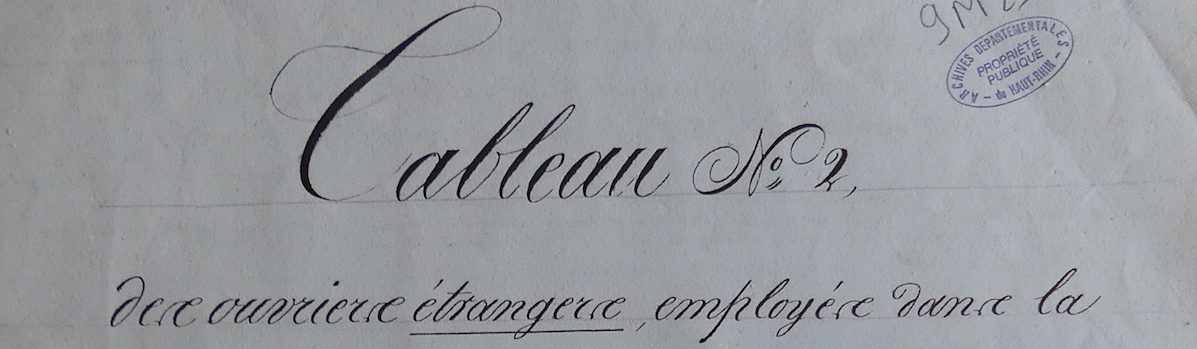 9M23
ARCHIVES DÉPARTEMENTALES
PROPRIÉTÉ
PUBLIQUE
— du HAUT-RHIN —
Tableau No. 2,
des ouvriers étrangers, employés dans la